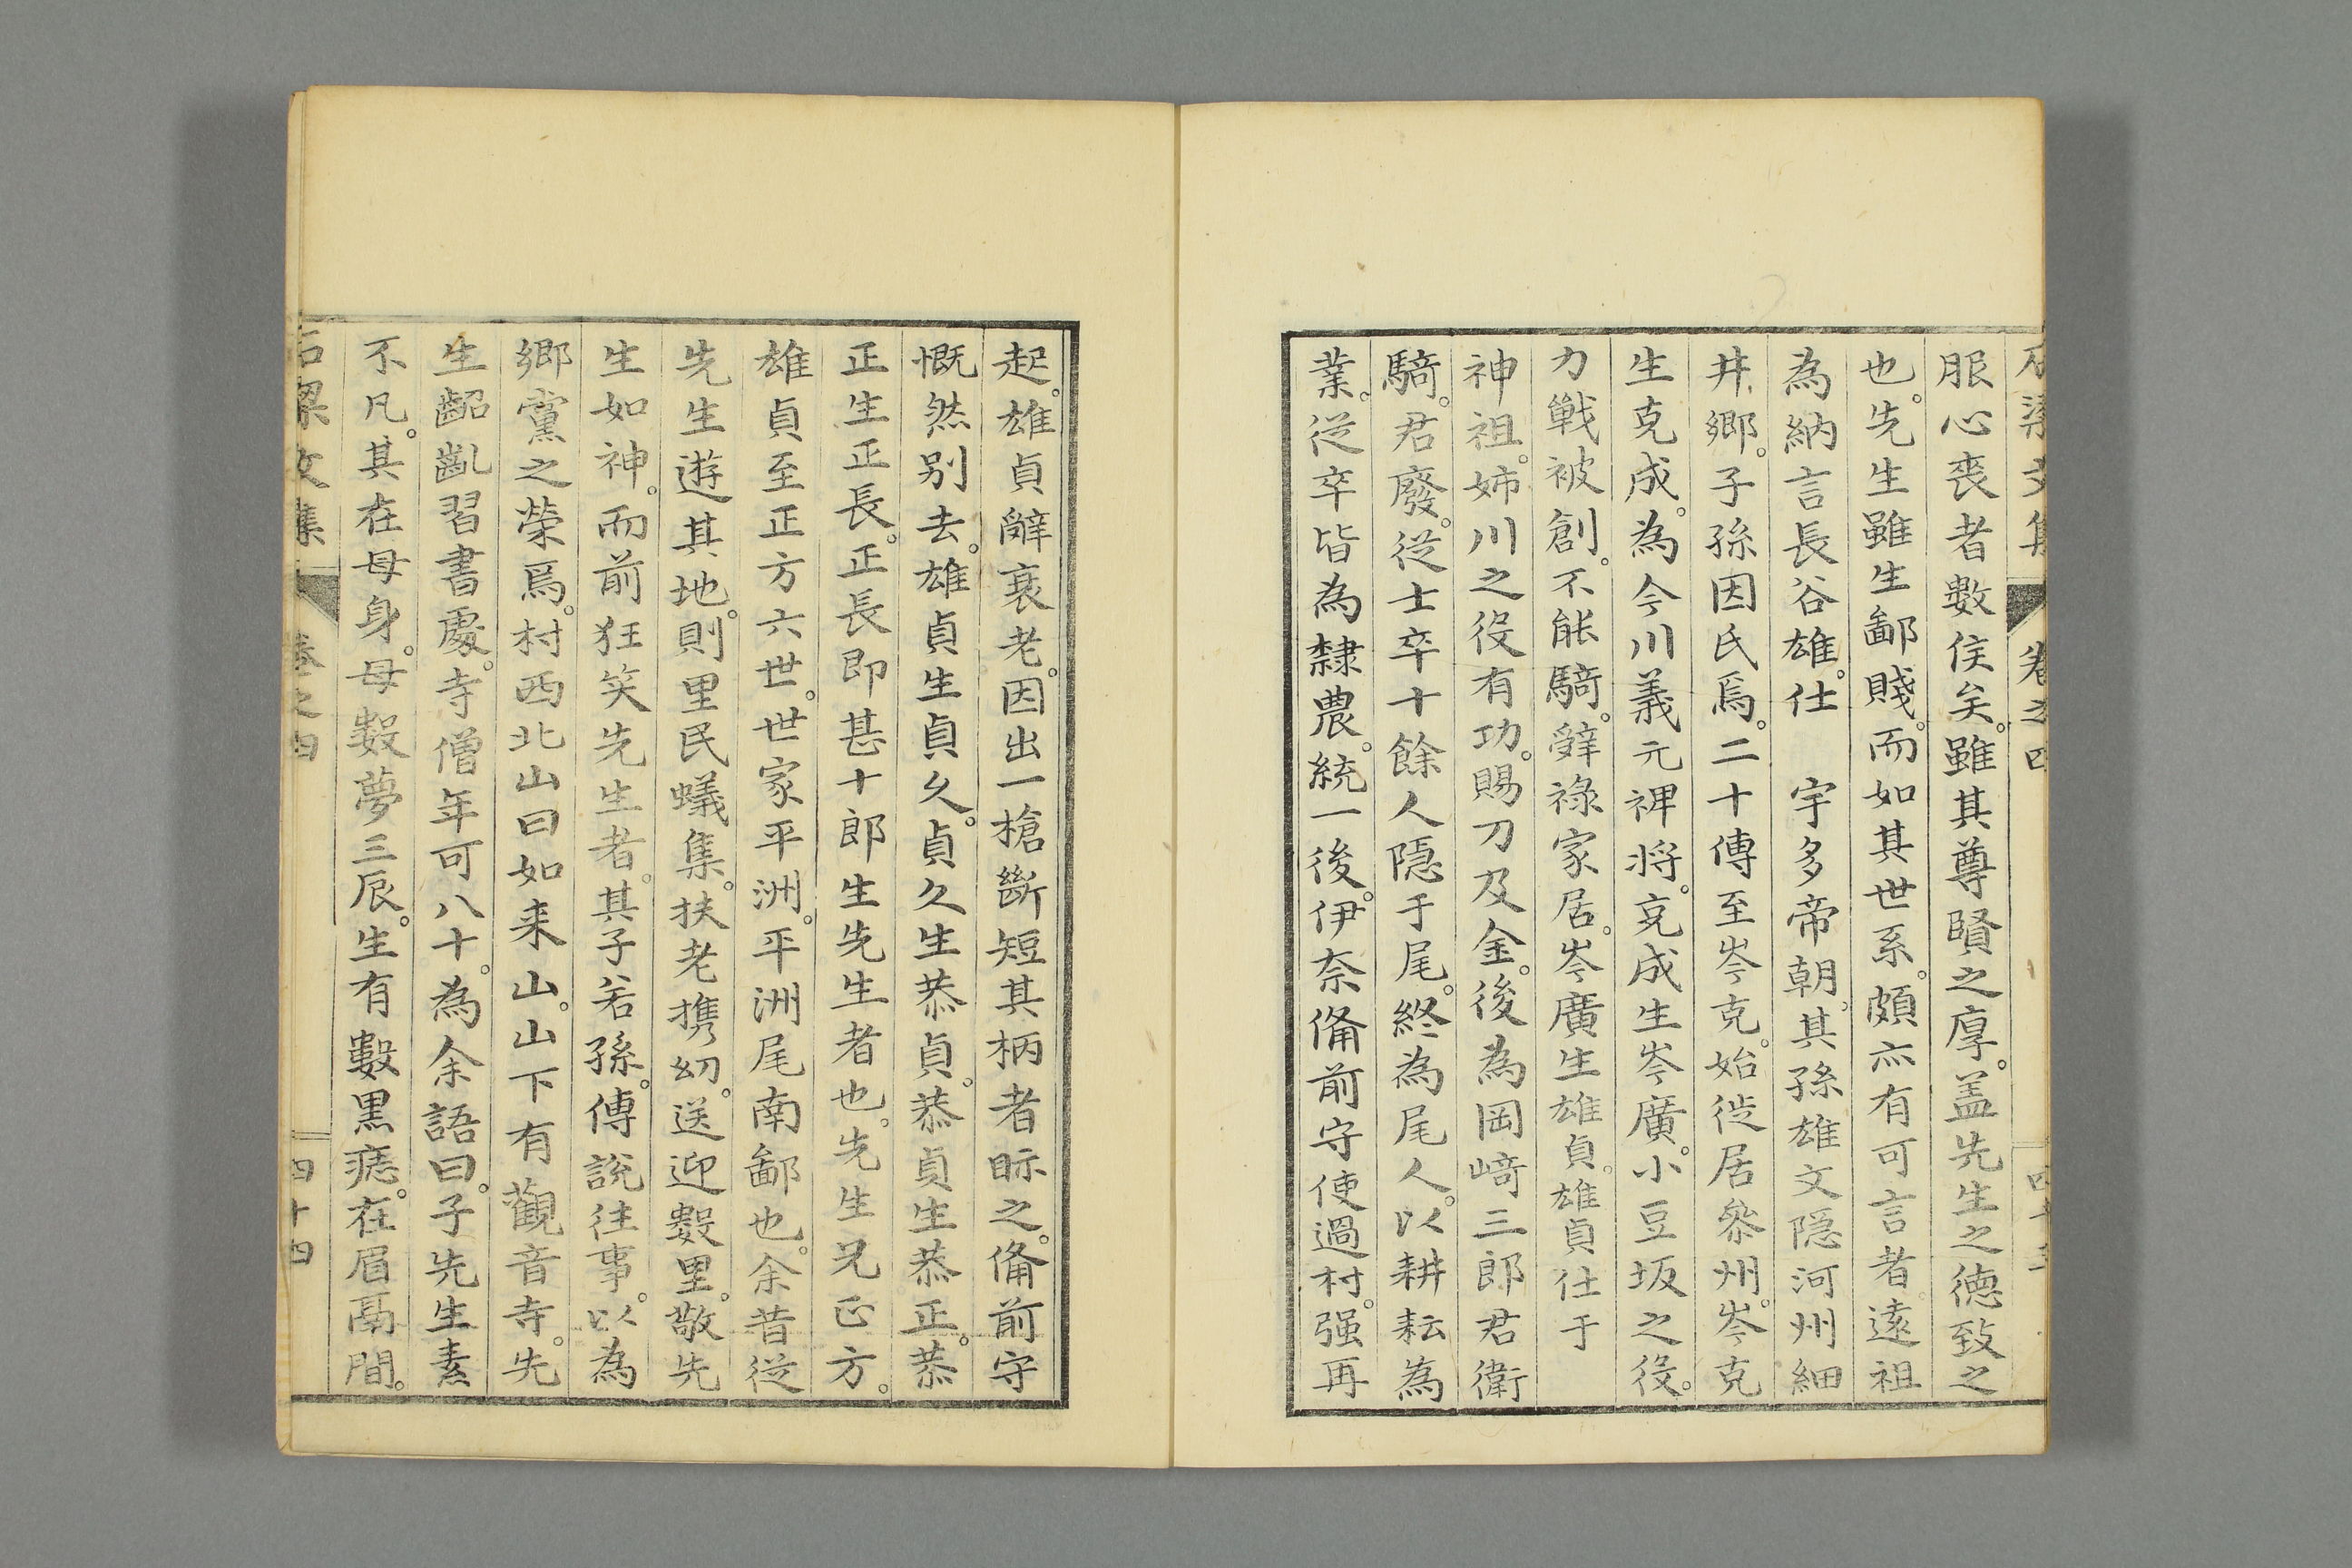 服心喪者數侯矣。雖其尊賢之厚。盖先生之德致之
也。先生雖生鄙賤。而如其世系。頗亦有可言者。遠祖
為納言長谷雄。仕　宇多帝朝。其孫雄文隠河州細
井鄉。子孫因氏焉。二十傳至岑克。始徙居參州。岑克
生克成。為今川義元裨将。克成生岑廣。小豆坂之役。
力戰被創。不能騎。辭祿家居。岑廣生雄貞。雄貞仕于
神祖。姉川之役有功。賜刀及金。後為岡崎三郎君衛
騎。君廢。從士卒十餘人隠于尾。終為尾人。以耕耘為
業。從卒皆為隸農。統一後。伊奈俻前守使過村。强再
起。雄貞辭衰老。因出一槍斷短其柄者眎之。俻前守
慨然別去。雄貞生貞久。貞久生恭貞。恭貞生恭正。恭
正生正長。正長即甚十郎生先生者也。先生兄正方。
雄貞至正方六世。世家平洲。平洲尾南鄙也。余昔從
先生遊其地。則里民蟻集。扶老携幼。送迎數里。敬先
生如神。而前狂笑先生者。其子若孫。傳說往事。以為
鄉黨之榮焉。村西北山曰如来山。山下有觀音寺。先
生齠齔習書處。寺僧年可八十。為余語曰。子先生素
不凡。其在母身。母數夢三辰。生有數黒痣。在眉鬲間。
卷之四
四十四